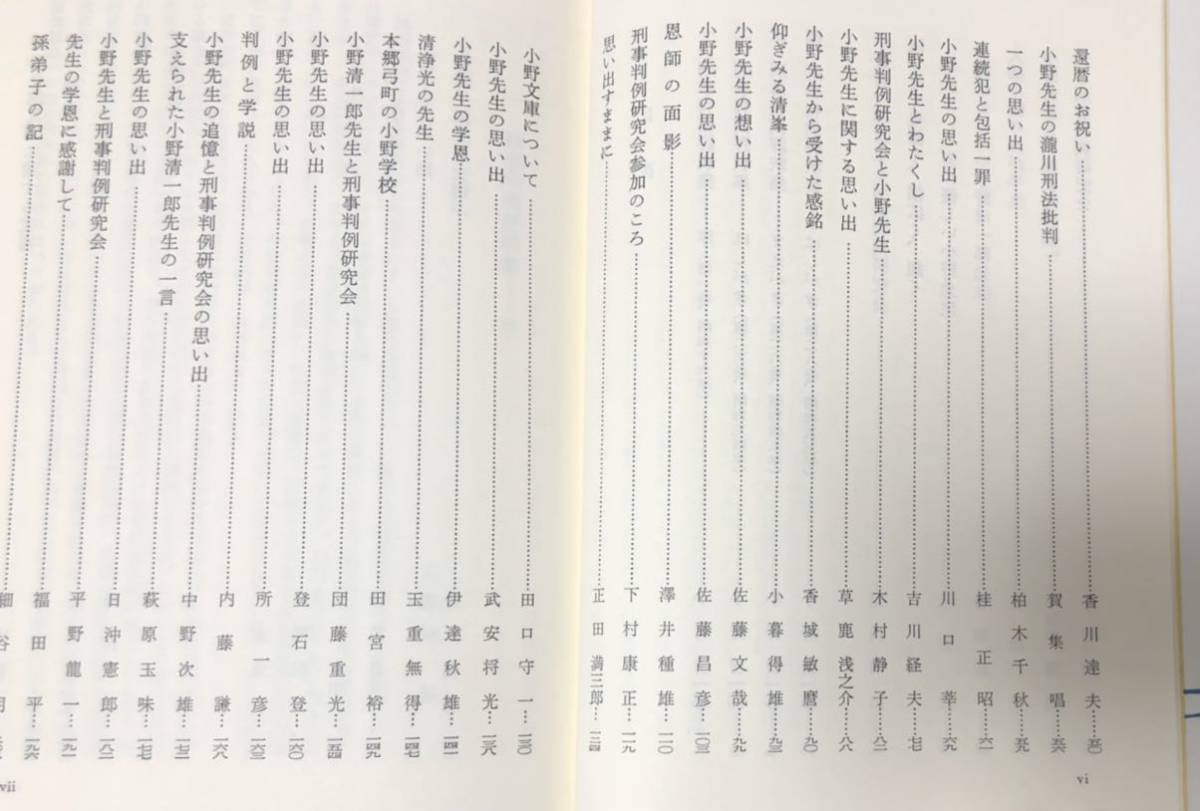 還暦のお祝い……香川達夫…五〇
小野先生の瀧川刑法批判……賀集唱…五六
一つの思い出……柏木千秋…五九
連続犯と包括一罪……桂正昭…六一
小野先生の思い出……川口莘…六九
小野先生とわたくし……吉川経夫…七七
刑事判例研究会と小野先生……木村静子…八二
小野先生に関する思い出……草鹿浅之介…八八
小野先生から受けた感銘……香城敏麿…九〇
仰ぎみる清峯……小暮得雄…九三
小野先生の想い出……佐藤文哉…九九
小野先生の思い出……佐藤昌彦…一〇三
恩師の面影……澤井種雄…一一〇
刑事判例研究会参加のころ……下村康正…一一九
思い出すままに……正田満三郎…一二四
vi
小野文庫について……田口守一…一三〇
小野先生の思い出……武安将光…一三八
小野先生の学恩……伊達秋雄…一四一
清浄光の先生……玉重無得…一四七
本郷弓町の小野学校……田宮裕…一四九
小野清一郎先生と刑事判例研究会……団藤重光…一五四
小野先生の思い出……登石登…一六〇
小野先生の思い出……所一彦…一六三
判例と学説……内藤謙…一六八
小野先生の追憶と刑事判例研究会の思い出……中野次雄…一七三
支えられた小野清一郎先生の一言……萩原玉味…一七七
小野先生の思い出……日沖憲郎…一八二
小野先生と刑事判例研究会……平野龍一…一九一
先生の学恩に感謝して……福田平…一九六
孫弟子の記……
vii